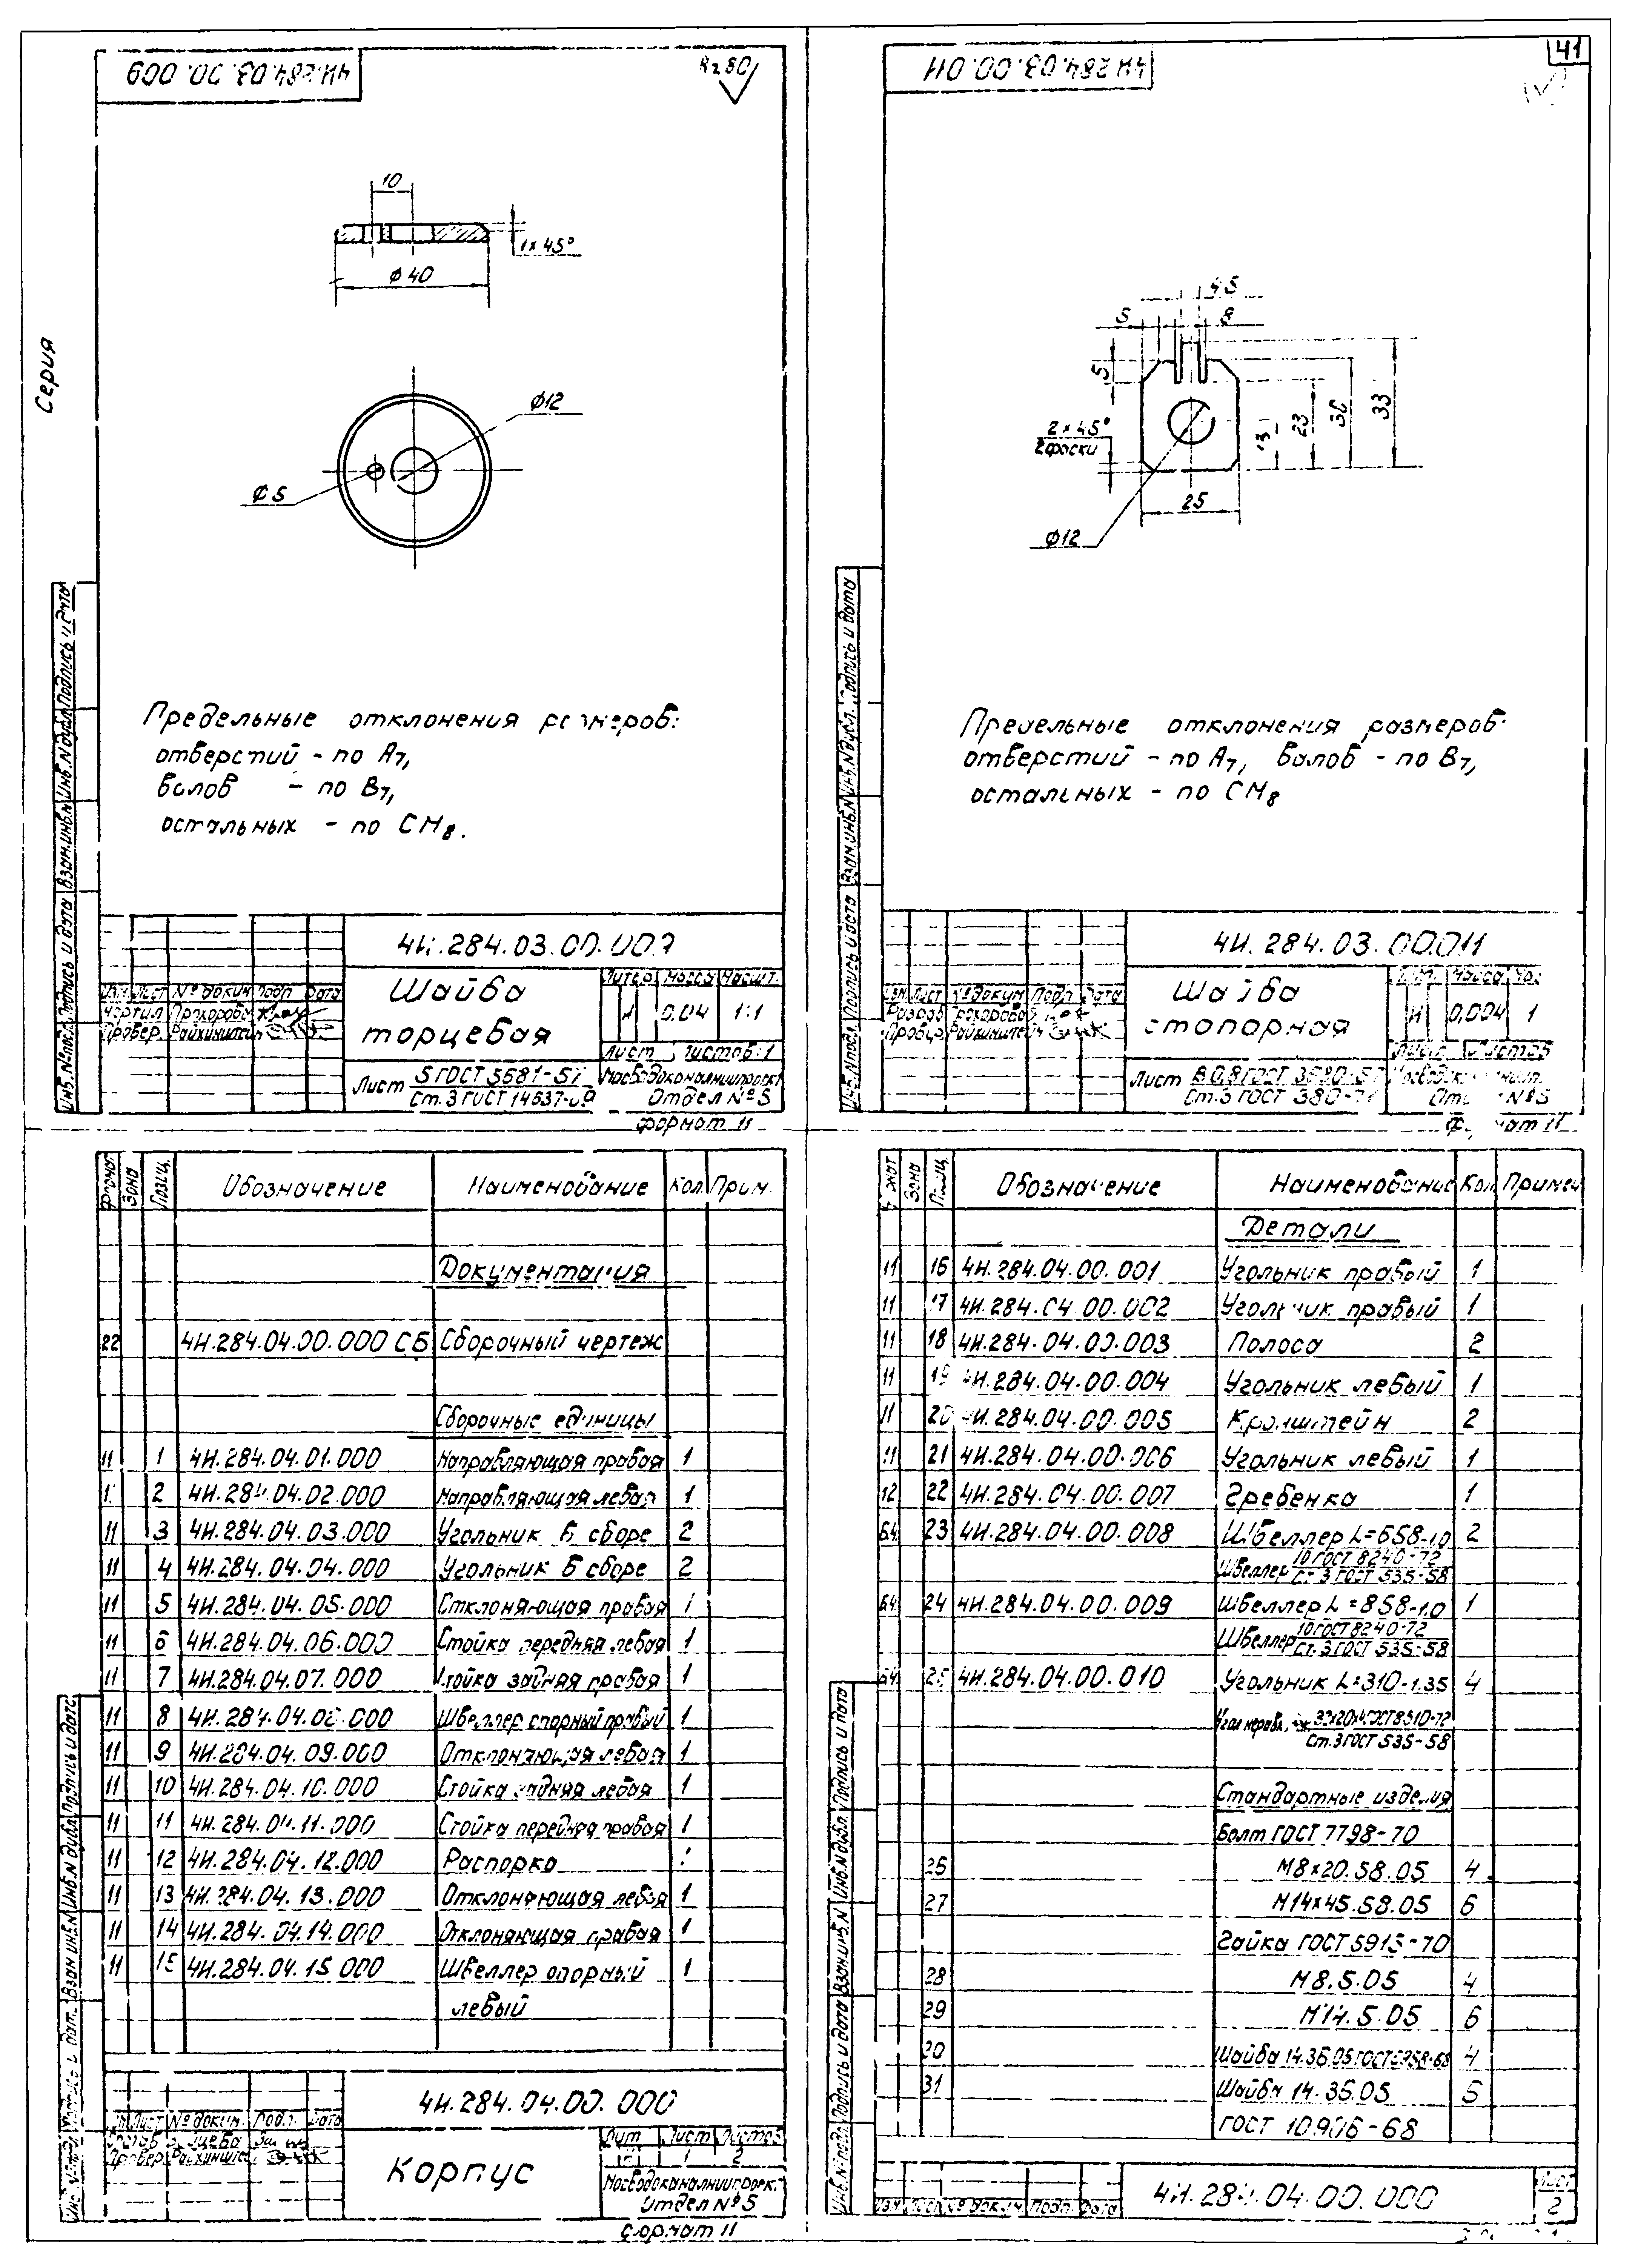 4И.284.03.00.009
Rz80
10
1×45°
Ф40
Ф12
Ф5
Серия
Предельные отклонения размеров:
отверстий - по А7,
валов - по В7,
остальных - по СМ8.
Инв.№подл. Подпись и дата Взам.инв.№ Инв.№дубл. Подпись и дата
Изм Лист №докум Подп Дата
Чертил Прохорова
Провер. Райхинштейн
Шайба
торцевая
Литера Масса Масшт.
И 0,04 1:1
Лист Листов 1
Лист 5 ГОСТ 5681-57
Ст.3 ГОСТ 14637-69
Мосводоканалниипроект
Отдел №5
Формат 11
41
4И.284.03.00.011
5
8
5
33
23
13
2×45°
2 фаски
25
Ф12
Предельные отклонения размеров:
отверстий - по А7, валов - по В7,
остальных - по СМ8
Инв.№подл. Подпись и дата Взам.инв.№ Инв.№дубл. Подпись и дата
4И.284.03.00.011
Изм Лист №докум Подп. Дата
Разраб Прохорова
Провер Райхинштейн
Шайба
стопорная
Лит. Масса
И 0,004 1
Лист Листов
Лист
Ст.3 ГОСТ 380-71
Отдел №5
Формат 11
Формат Зона Позиц. Обозначение Наименование Кол. Прим.
Документация
22 4И.284.04.00.000 СБ Сборочный чертеж
Сборочные единицы
11 1 4И.284.04.01.000 Направляющая правая 1
2 4И.284.04.02.000 Направляющая левая 1
11 3 4И.284.04.03.000 Угольник в сборе 2
11 4 4И.284.04.04.000 Угольник в сборе 2
11 5 4И.284.04.05.000 Отклоняющая правая 1
11 6 4И.284.04.06.000 Стойка передняя левая 1
11 7 4И.284.04.07.000 Стойка задняя правая 1
11 8 4И.284.04.08.000 Швеллер опорный правый 1
11 9 4И.284.04.09.000 Отклоняющая левая 1
11 10 4И.284.04.10.000 Стойка задняя левая 1
11 11 4И.284.04.11.000 Стойка передняя правая 1
11 12 4И.284.04.12.000 Распорка
11 13 4И.284.04.13.000 Отклоняющая левая 1
11 14 4И.284.04.14.000 Отклоняющая правая 1
11 15 4И.284.04.15.000 Швеллер опорный 1
левый
Инв.№подл. Подпись и дата Взам инв.№ Инв.№дубл. Подпись и дата
4И.284.04.00.000
Изм Лист №докум. Подп. Дата
Провер. Райхинштейн
Корпус
Лит Лист Листов
1 2
Мосводоканалниипроект
Отдел №5
Формат 11
Формат Зона Позиц. Обозначение Наименование Кол Примеч
Детали
11 16 4И.284.04.00.001 Угольник правый 1
11 17 4И.284.04.00.002 Угольник правый 1
11 18 4И.284.04.00.003 Полоса 2
11 19 4И.284.04.00.004 Угольник левый 1
11 20 4И.284.04.00.005 Кронштейн 2
11 21 4И.284.04.00.006 Угольник левый 1
12 22 4И.284.04.00.007 Гребенка 1
Б4 23 4И.284.04.00.008 Швеллер L=658-1.0 2
Швеллер 10 ГОСТ 8240-72
Ст 3 ГОСТ 535-58
Б4 24 4И.284.04.00.009 Швеллер L=858-1.0 1
Швеллер 10 ГОСТ 8240-72
Ст.3 ГОСТ 535-58
Б4 25 4И.284.04.00.010 Угольник L=310-1.35 4
Ст.3 ГОСТ 535-58
Стандартные изделия
Болт ГОСТ 7798-70
26 М8×20.58.05 4
27 М14×45.58.05 6
Гайка ГОСТ 5915-70
28 М8.5.05 4
29 М14.5.05 6
4
31 Шайба 14.36.05
ГОСТ 10.906-68
Инв.№подл. Подпись и дата Взам.инв.№ Инв.№дубл. Подпись и дата
Изм Лист №докум. Подп. Дата
4И.284.04.00.000
Лист
2